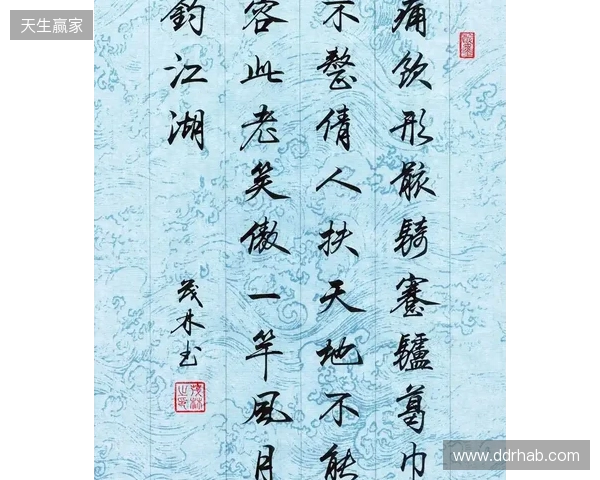 天生赢家
痛飲形骸騎蹇驢葛巾
不整倩人扶天地不能
容此老笑傲一竿風月
釣江湖
茂林书
www.ddrhab.com